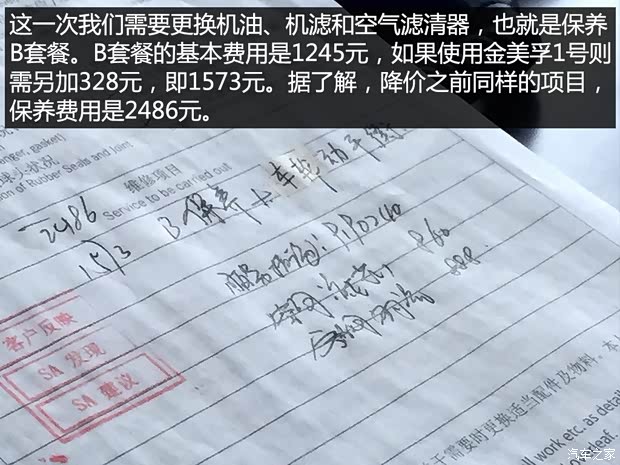 这一次我们需要更换机油、机滤和空气滤清器，也就是保养
B套餐。B套餐的基本费用是1245元，如果使用金美孚1号则
需另加328元，即1573元。据了解，降价之前同样的项目，
保养费用是2486元。
enger, gasket)
球头状况
on of Rubber Seals and Joint
维修项目
Service to be carried out
2486
B 保养 + 车轮动平衡
1573
860
888
客户反映
SA 发现
SA 建议
于需要时更换适当配件及物料。本
ll work etc. as detail
汽车之家